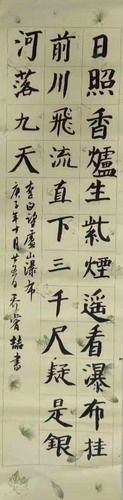 日照香爐生紫煙遥看瀑布挂
前川飛流直下三千尺疑是銀
河落九天
李白望廬山瀑布
庚子年十月廿五日喬營喆書